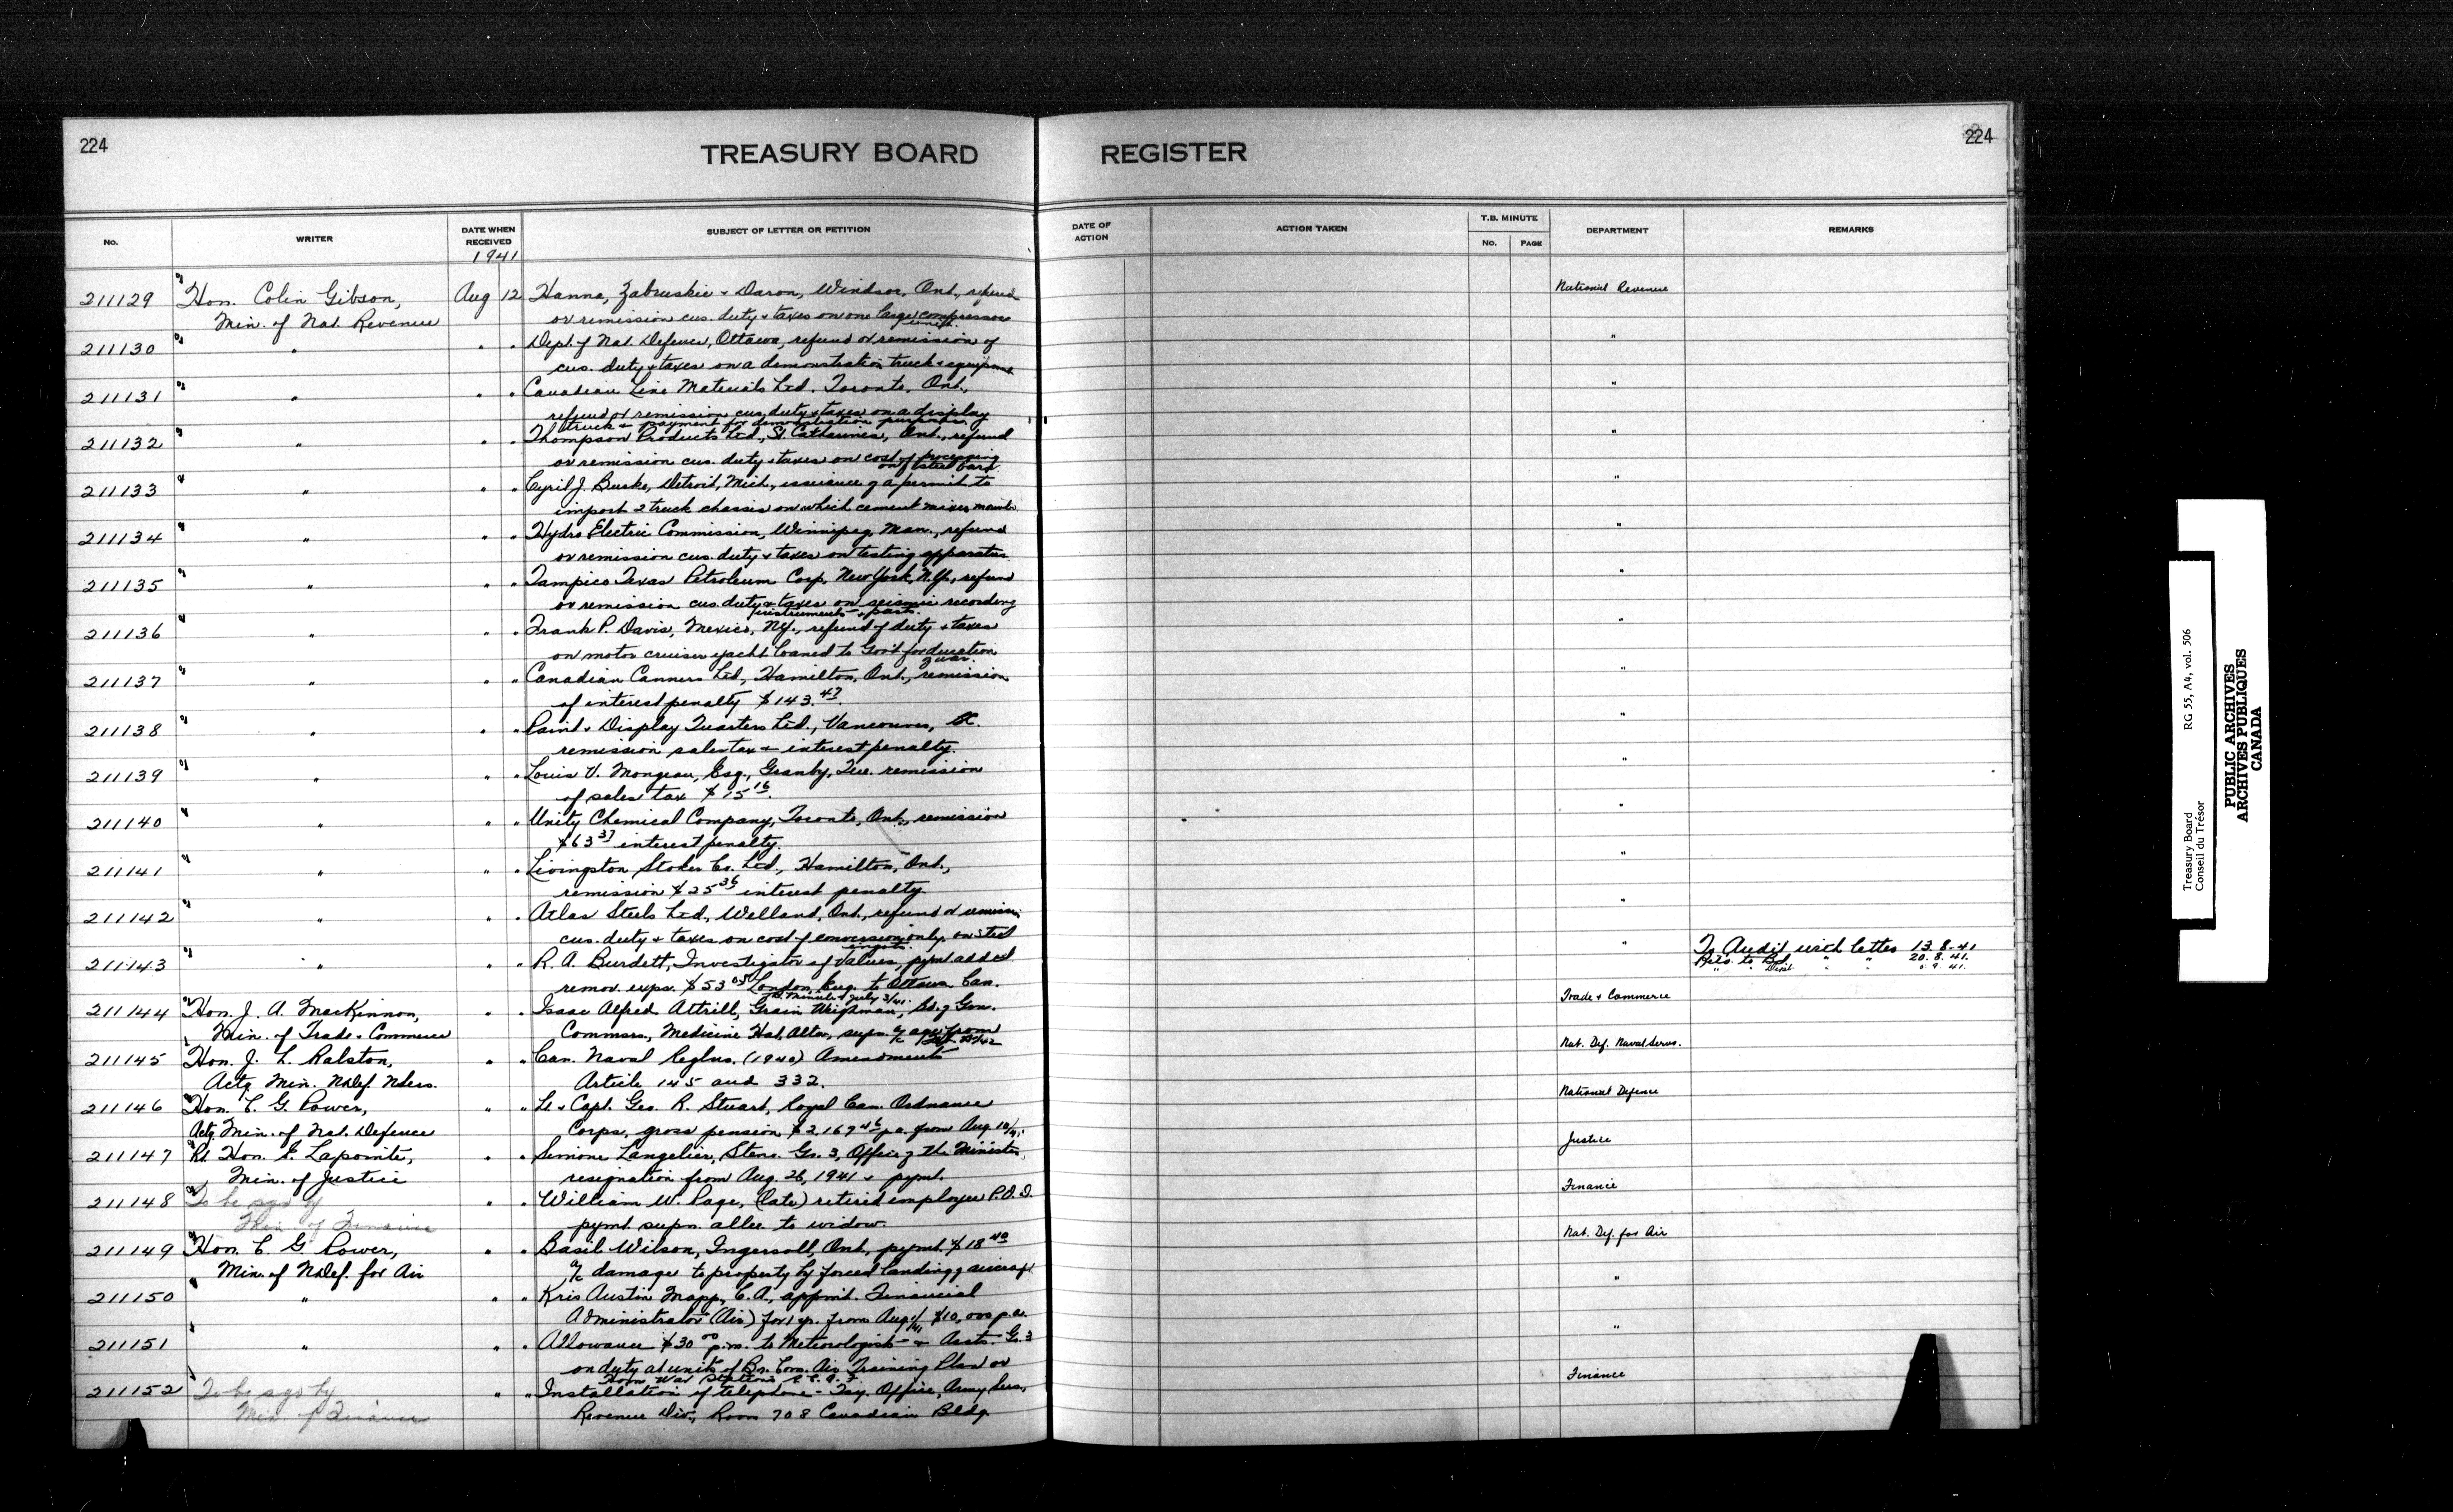 224
TREASURY BOARD REGISTER
224
No. WRITER DATE WHEN RECEIVED SUBJECT OF LETTER OR PETITION DATE OF ACTION ACTION TAKEN T.B. MINUTE No. PAGE DEPARTMENT REMARKS
1941
211129 Hon. Colin Gibson, Aug 12 Hanna, Zabruskie & Daron, Windsor, Ont., refund National Revenue
Min. of Nat. Revenue or remission cus. duty & taxes on one large compressor
unit.
211130 " " " Dept. of Nat. Defence, Ottawa, refund or remission of "
cus. duty & taxes on a demonstration truck & equipment
211131 " " " Canadian Line Materials Ltd. Toronto, Ont., "
refund or remission cus. duty & taxes on a display
truck & payment for demonstration purposes.
211132 " " " Thompson Products Ltd., St. Catharines, Ont., refund "
or remission cus. duty & taxes on cost of processing
on steel bars.
211133 " " " Cyril J. Burke, Detroit, Mich., issuance of a permit to "
import 2 truck chassis on which cement mixers
211134 " " " Hydro Electric Commission, Winnipeg, Man., refund "
or remission cus. duty & taxes on testing apparatus
211135 " " " Tampico Texas Petroleum Corp, New York, N.Y., refund "
or remission cus. duty & taxes on seismic recording
instruments & parts.
211136 " " " Frank P. Davis, Mexico, N.Y., refund of duty & taxes "
on motor cruiser yacht loaned to Gov't for duration
of war.
211137 " " " Canadian Canners Ltd., Hamilton, Ont., remission "
of interest penalty $143.47
211138 " " " Paint & Display Quarters Ltd., Vancouver, BC. "
remission sales tax & interest penalty.
211139 " " " Louis V. Mongeau, Esq., Granby, Que. remission "
of sales tax $15 16.
211140 " " " Unity Chemical Company, Toronto, Ont., remission "
$63 37 interest penalty.
211141 " " " Livingston Stoker Co. Ltd., Hamilton, Ont., "
remission $25 36 interest penalty.
211142 " " " Atlas Steels Ltd., Welland, Ont., refund or remissn. "
cus. duty & taxes on cost of conversion only on steel
ingots.
211143 " " " R. A. Burdett, Investigator of Values, pymt. added " To Audit with letter 13.8.41
remov. exps. $53 05 London, Eng. to Ottawa Can. Rets. to Bd. " " 20.8.41.
" " Dept. " " 5.9.41.
T.B. Minute of July 3/41.
211144 Hon. J. A. MacKinnon, " " Isaac Alfred Attrill, Grain Weighman, Bd. of Grn. Trade & Commerce
Min. of Trade & Commerce Commrs., Medicine Hat, Alta, supn. a/c age from
211145 Hon. J. L. Ralston, " " Can. Naval Reglns. (1940) Amendments Nat. Def. Naval Servs.
Actg Min. N. Def. N. Sers. Article 145 and 332.
211146 Hon. C. G. Power, " " Lt. & Capt. Geo. R. Stuart, Royal Can. Ordnance National Defence
Actg. Min. of Nat. Defence Corps, gross pension $2,169 46 p.a. from Aug. 10/41.
211147 Rt. Hon. E. Lapointe, " " Simone Langelier, Steno. Gr. 3, Office of the Minister, Justice
Min. of Justice resignation from Aug. 26, 1941 & pymt.
211148 To be sgd by " " William W. Page, (late) retired employee P.O.D. Finance
Min. of Finance pymt. supn. allce to widow.
211149 Hon. C. G. Power, " " Basil Wilson, Ingersoll, Ont., pymt. $18 40 Nat. Def. for Air
Min. of N. Def. for Air a/c damage to property by forced landing of aircraft
211150 " " " Kris Austin Mapp, C.A., appmt. Financial "
Administrator (Air) for 1 yr. from Aug 1/41 $10,000 p.a.
211151 " " " Allowance $30 00 p.m. to Meteorologists & Assts. Gr. 3 "
on duty at units of Br. Com. Air Training Plan or
Home War Stations R.C.A.F.
211152 To be sgd by " " Installation of telephone - Tsy. Office, Army Sers, Finance
Min. of Finance Revenue Div., Room 708 Canadian Bldg.
Treasury Board RG 55, A4, vol. 506
Conseil du Trésor
PUBLIC ARCHIVES
ARCHIVES PUBLIQUES
CANADA